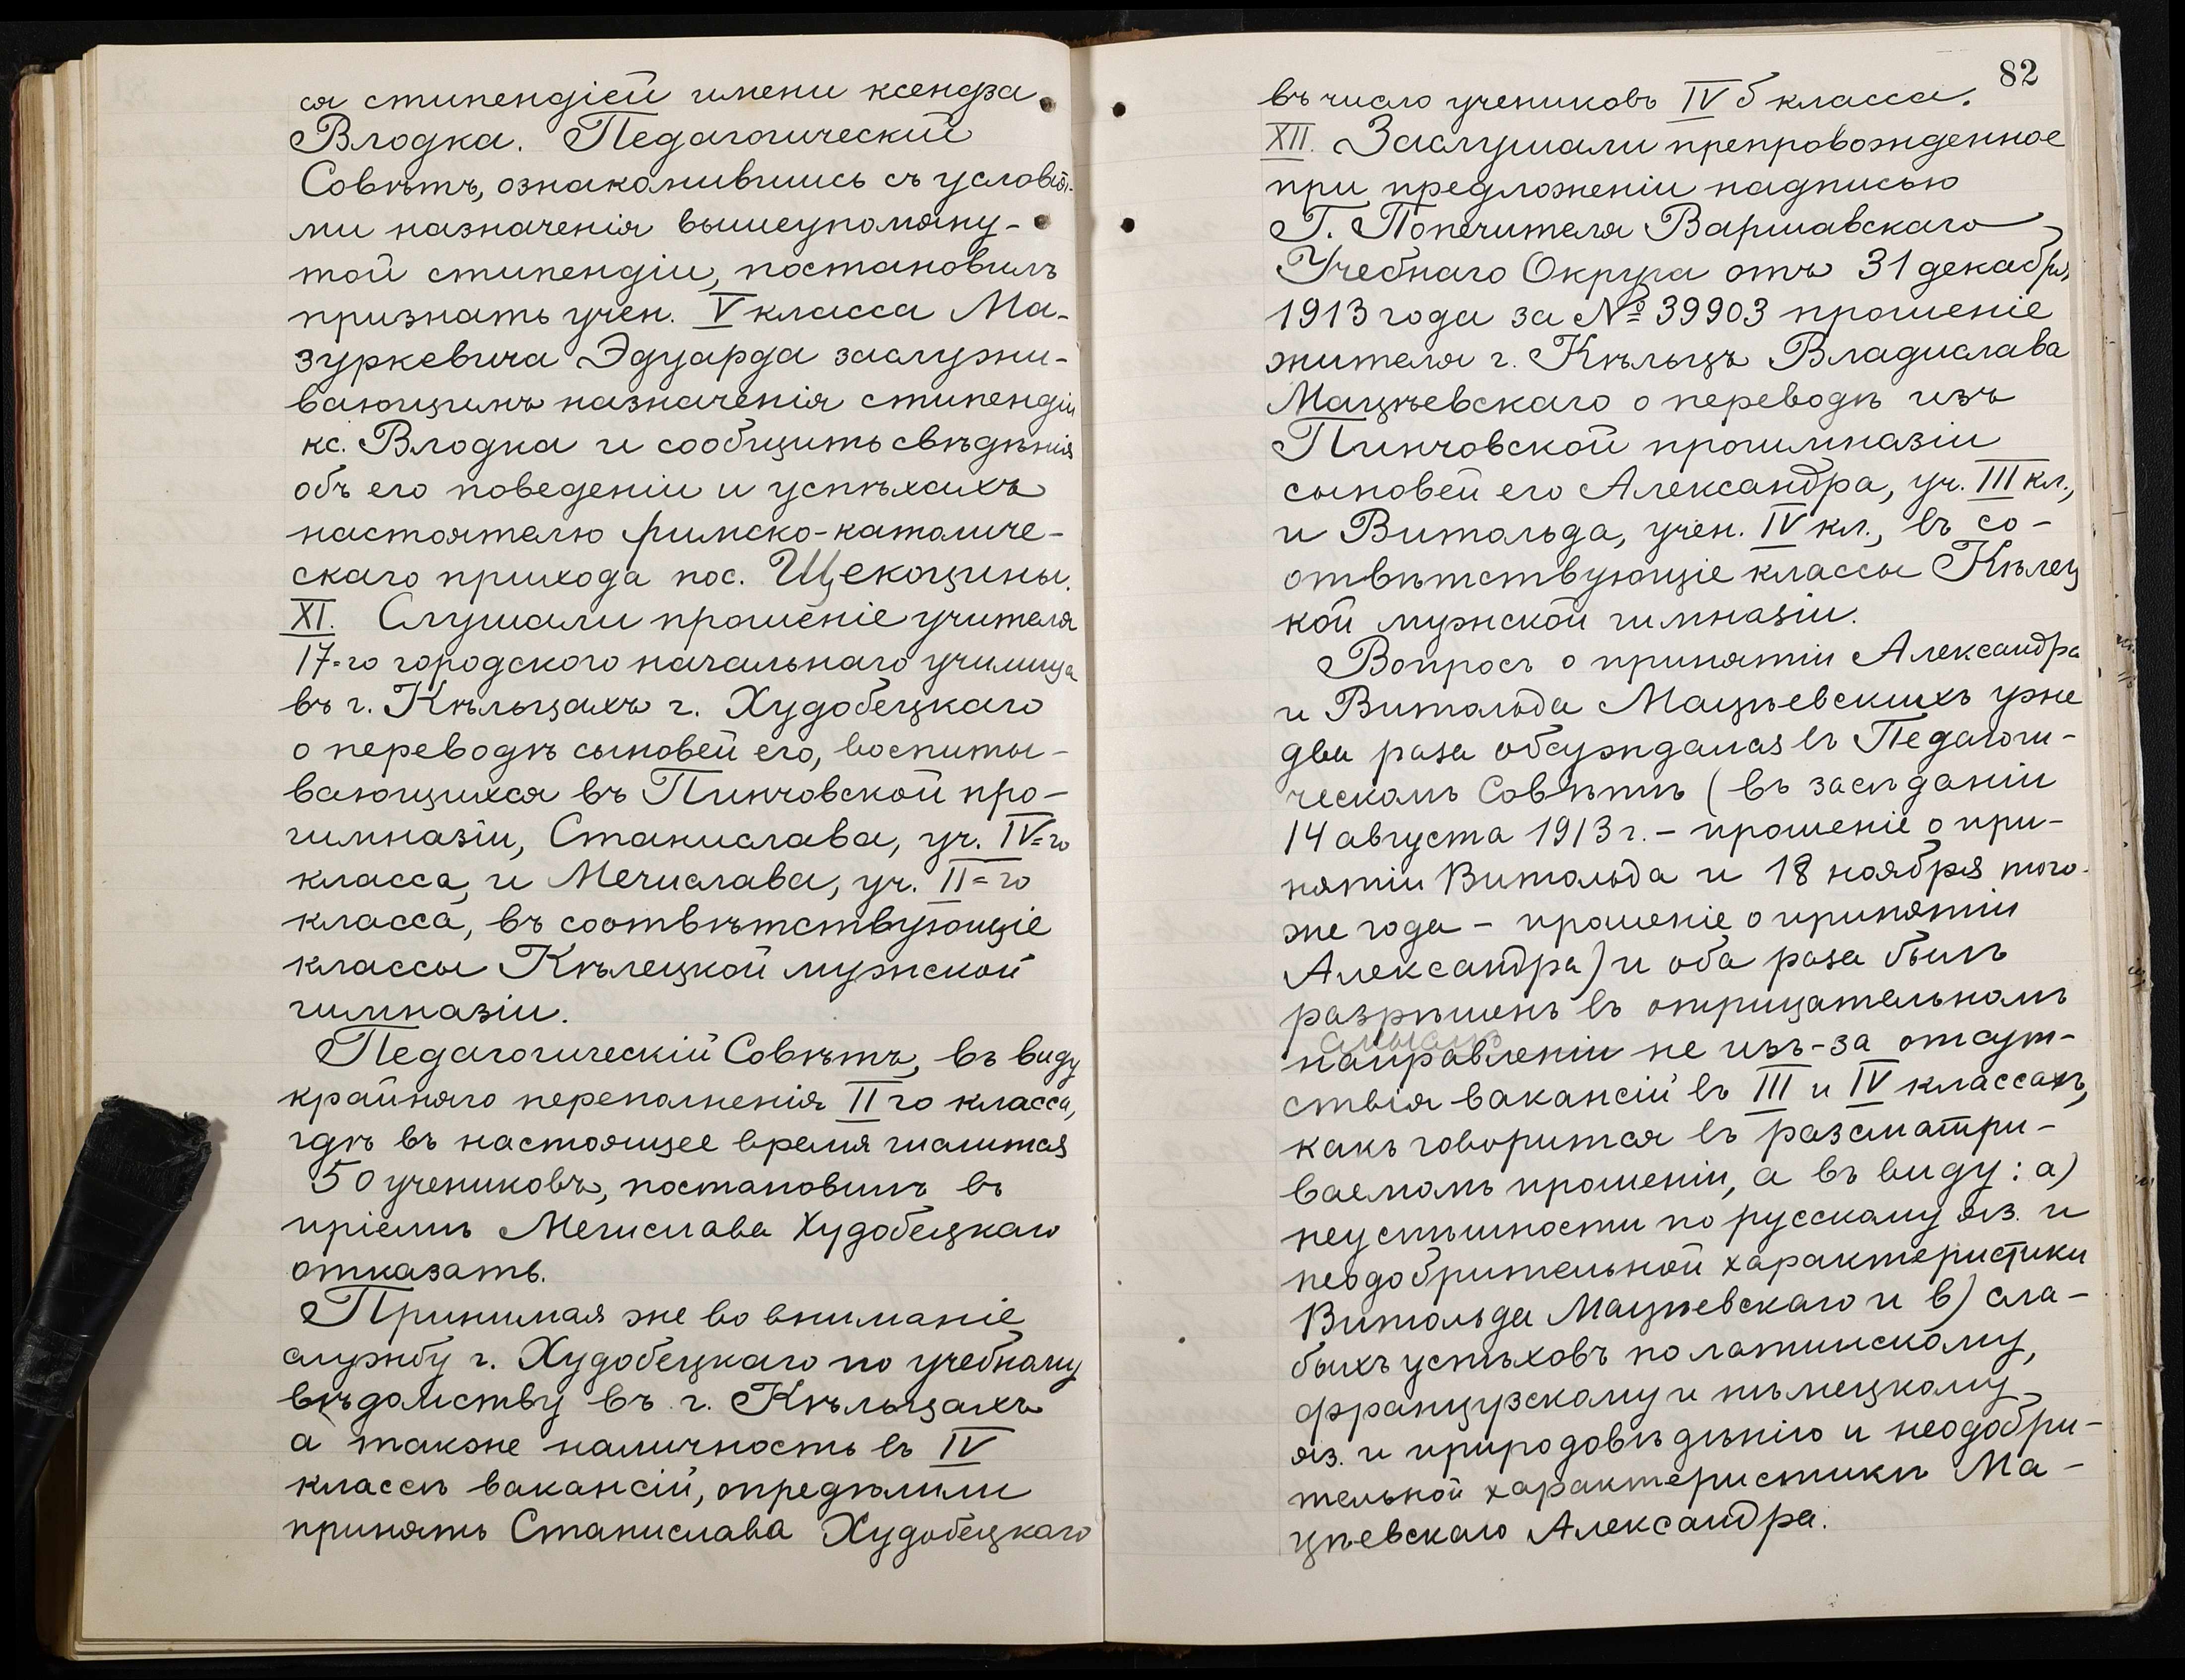 ся стипендіей имени ксендза
Влодка. Педагогическій
Совѣтъ, ознакомившись съ условія-
ми назначенія вышеупомяну-
той стипендіи, постановилъ
признать учен. V класса Ма-
зуркевича Эдуарда заслужи-
вающимъ назначенія стипендіи
кс. Влодка и сообщить свѣдѣнія
объ его поведеніи и успѣхахъ
настоятелю римско-католиче-
скаго прихода пос. Щекоцины.
XI. Слушали прошеніе учителя
17=го городского начальнаго училища
въ г. Кѣльцахъ г. Худобецкаго
о переводѣ сыновей его, воспиты-
вающихся въ Пинчовской про-
гимназіи, Станислава, уч. IV=го
класса, и Мечислава, уч. II=го
класса, въ соотвѣтствующіе
классы Кѣлецкой мужской
гимназіи.
Педагогическій Совѣтъ, въ виду
крайняго переполненія II го класса,
гдѣ въ настоящее время числится
50 учениковъ, постановилъ въ
пріемѣ Мечислава Худобецкаго
отказать.
Принимая же во вниманіе
службу г. Худобецкаго по учебному
вѣдомству въ г. Кѣльцахъ
а также наличность въ IV
классѣ вакансій, опредѣлили
принять Станислава Худобецкаго
82
въ число учениковъ IV б класса.
XII. Заслушали препровожденное
при предложеніи надписью
Г. Попечителя Варшавскаго
Учебнаго Округа отъ 31 декабря
1913 года за № 39903 прошеніе
жителя г. Кѣльцъ Владислава
Мацѣевскаго о переводѣ изъ
Пинчовской прогимназіи
сыновей его Александра, уч. III кл.,
и Витольда, учен. IV кл., въ со-
отвѣтствующіе классы Кѣлец
кой мужской гимназіи.
Вопросъ о принятіи Александра
и Витольда Мацѣевскихъ уже
два раза обсуждался въ Педагоги-
ческомъ Совѣтѣ (въ засѣданіи
14 августа 1913 г. – прошеніе о при-
нятіи Витольда и 18 ноября того
же года – прошеніе о принятіи
Александра) и оба раза былъ
разрѣшенъ въ отрицательномъ
направленіи не изъ-за отсут-
ствія вакансій въ III и IV классахъ,
какъ говорится въ разсматри-
ваемомъ прошеніи, а въ виду: а)
неуспѣшности по русскому яз. и
неодобрительной характеристики
Витольда Мацѣевскаго и в) сла-
быхъ успѣховъ по латинскому,
французскому и нѣмецкому
яз. и природовѣдѣнію и неодобри-
тельной характеристикѣ Ма-
цѣевскаго Александра.